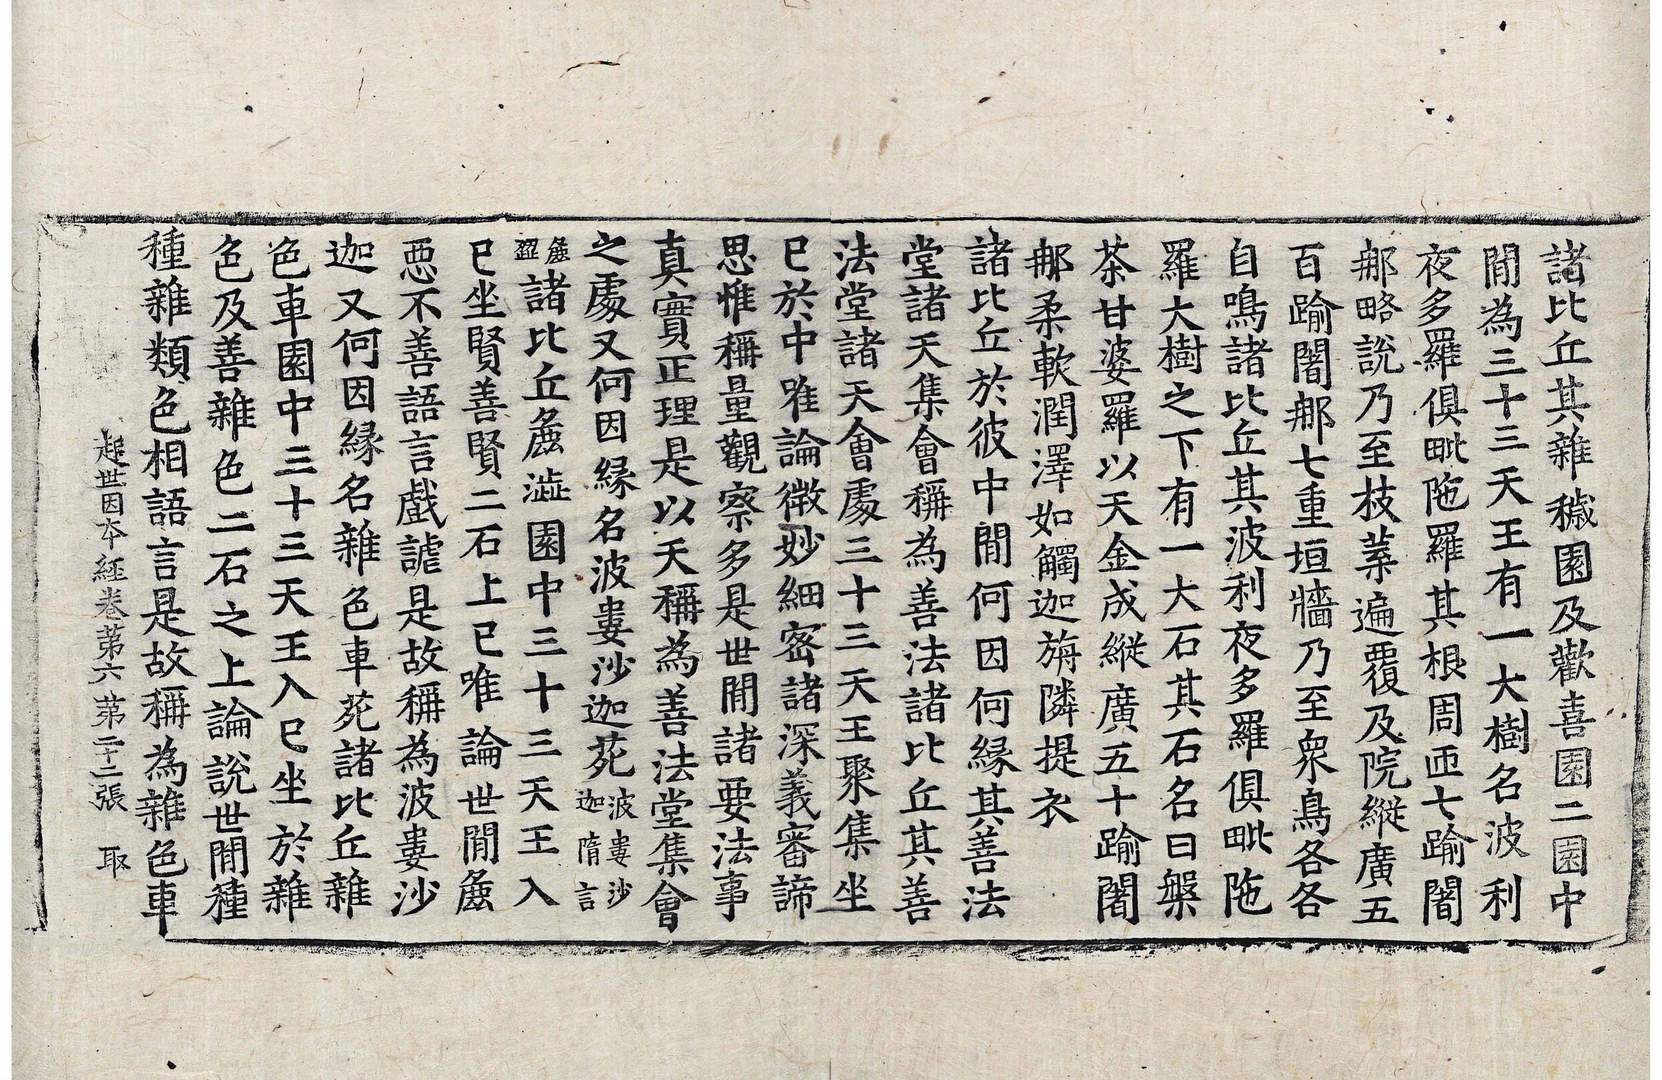 諸比丘其雜穢園及歡喜園二園中
間為三十三天王有一大樹名波利
夜多羅俱毗陁羅其根周匝七踰闍
郍略說乃至枝葉遍覆及院縱廣五
百踰闍郍七重垣牆乃至衆鳥各各
自鳴諸比丘其波利夜多羅俱毗陁
羅大樹之下有一大石其石名曰槃
荼甘婆羅以天金成縱廣五十踰闍
郍柔軟潤澤如觸迦旃隣提衣
諸比丘於彼中間何因何緣其善法
堂諸天集會稱為善法諸比丘其善
法堂諸天會處三十三天王聚集坐
已於中唯論微妙細密諸深義審諦
思惟稱量觀察多是世間諸要法事
真實正理是以天稱為善法堂集會
之處又何因緣名波婁沙迦苑波婁沙迦隋言
麁澀諸比丘麁澁園中三十三天王入
已坐賢善賢二石上已唯論世間麁
惡不善語言戲謔是故稱為波婁沙
迦又何因緣名雜色車苑諸比丘雜
色車園中三十三天王入已坐於雜
色及善雜色二石之上論說世間種
種雜類色相語言是故稱為雜色車
起世因本經卷第六 第二十二張 取